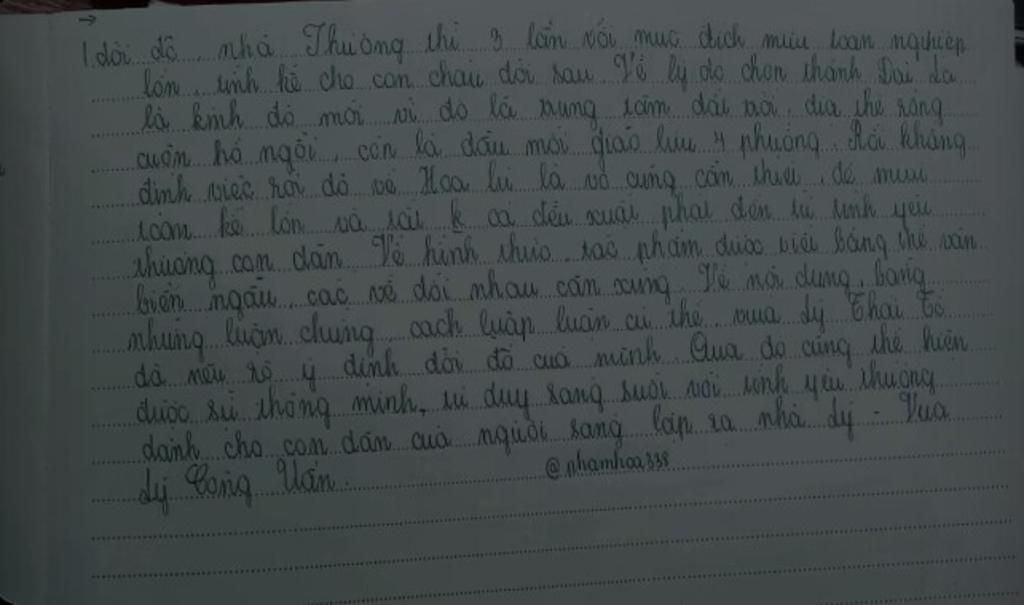 →
1 dời đô, nhà Thương thì 3 lần với mục đích mưu toan nghiệp
lớn, tính kế cho con cháu đời sau. Về lý do chọn thành Đại La
là kinh đô mới vì đó là trung tâm đất trời, địa thế rồng
cuộn hổ ngồi, còn là đầu mối giao lưu 4 phương. Rồi khẳng
định việc rời đô về Hoa Lư là vô cùng cần thiết, để mưu
toàn kế lớn và tất k cả đều xuất phát đến từ tình yêu
thương con dân. Về hình thức, tác phẩm được viết bằng thể văn
biền ngẫu, các vế đối nhau cân xứng. Về nội dung, bằng
những luận chứng, cách luập luận cụ thể, vua Lý Thái Tổ
đã nêu rõ ý định dời đô của mình. Qua đó cũng thể hiện
được sự thông minh, tư duy sáng suốt với tình yêu thương
dành cho con dân của người sáng lập ra nhà Lý - Vua
Lý Công Uẩn.
@nhamhoa338